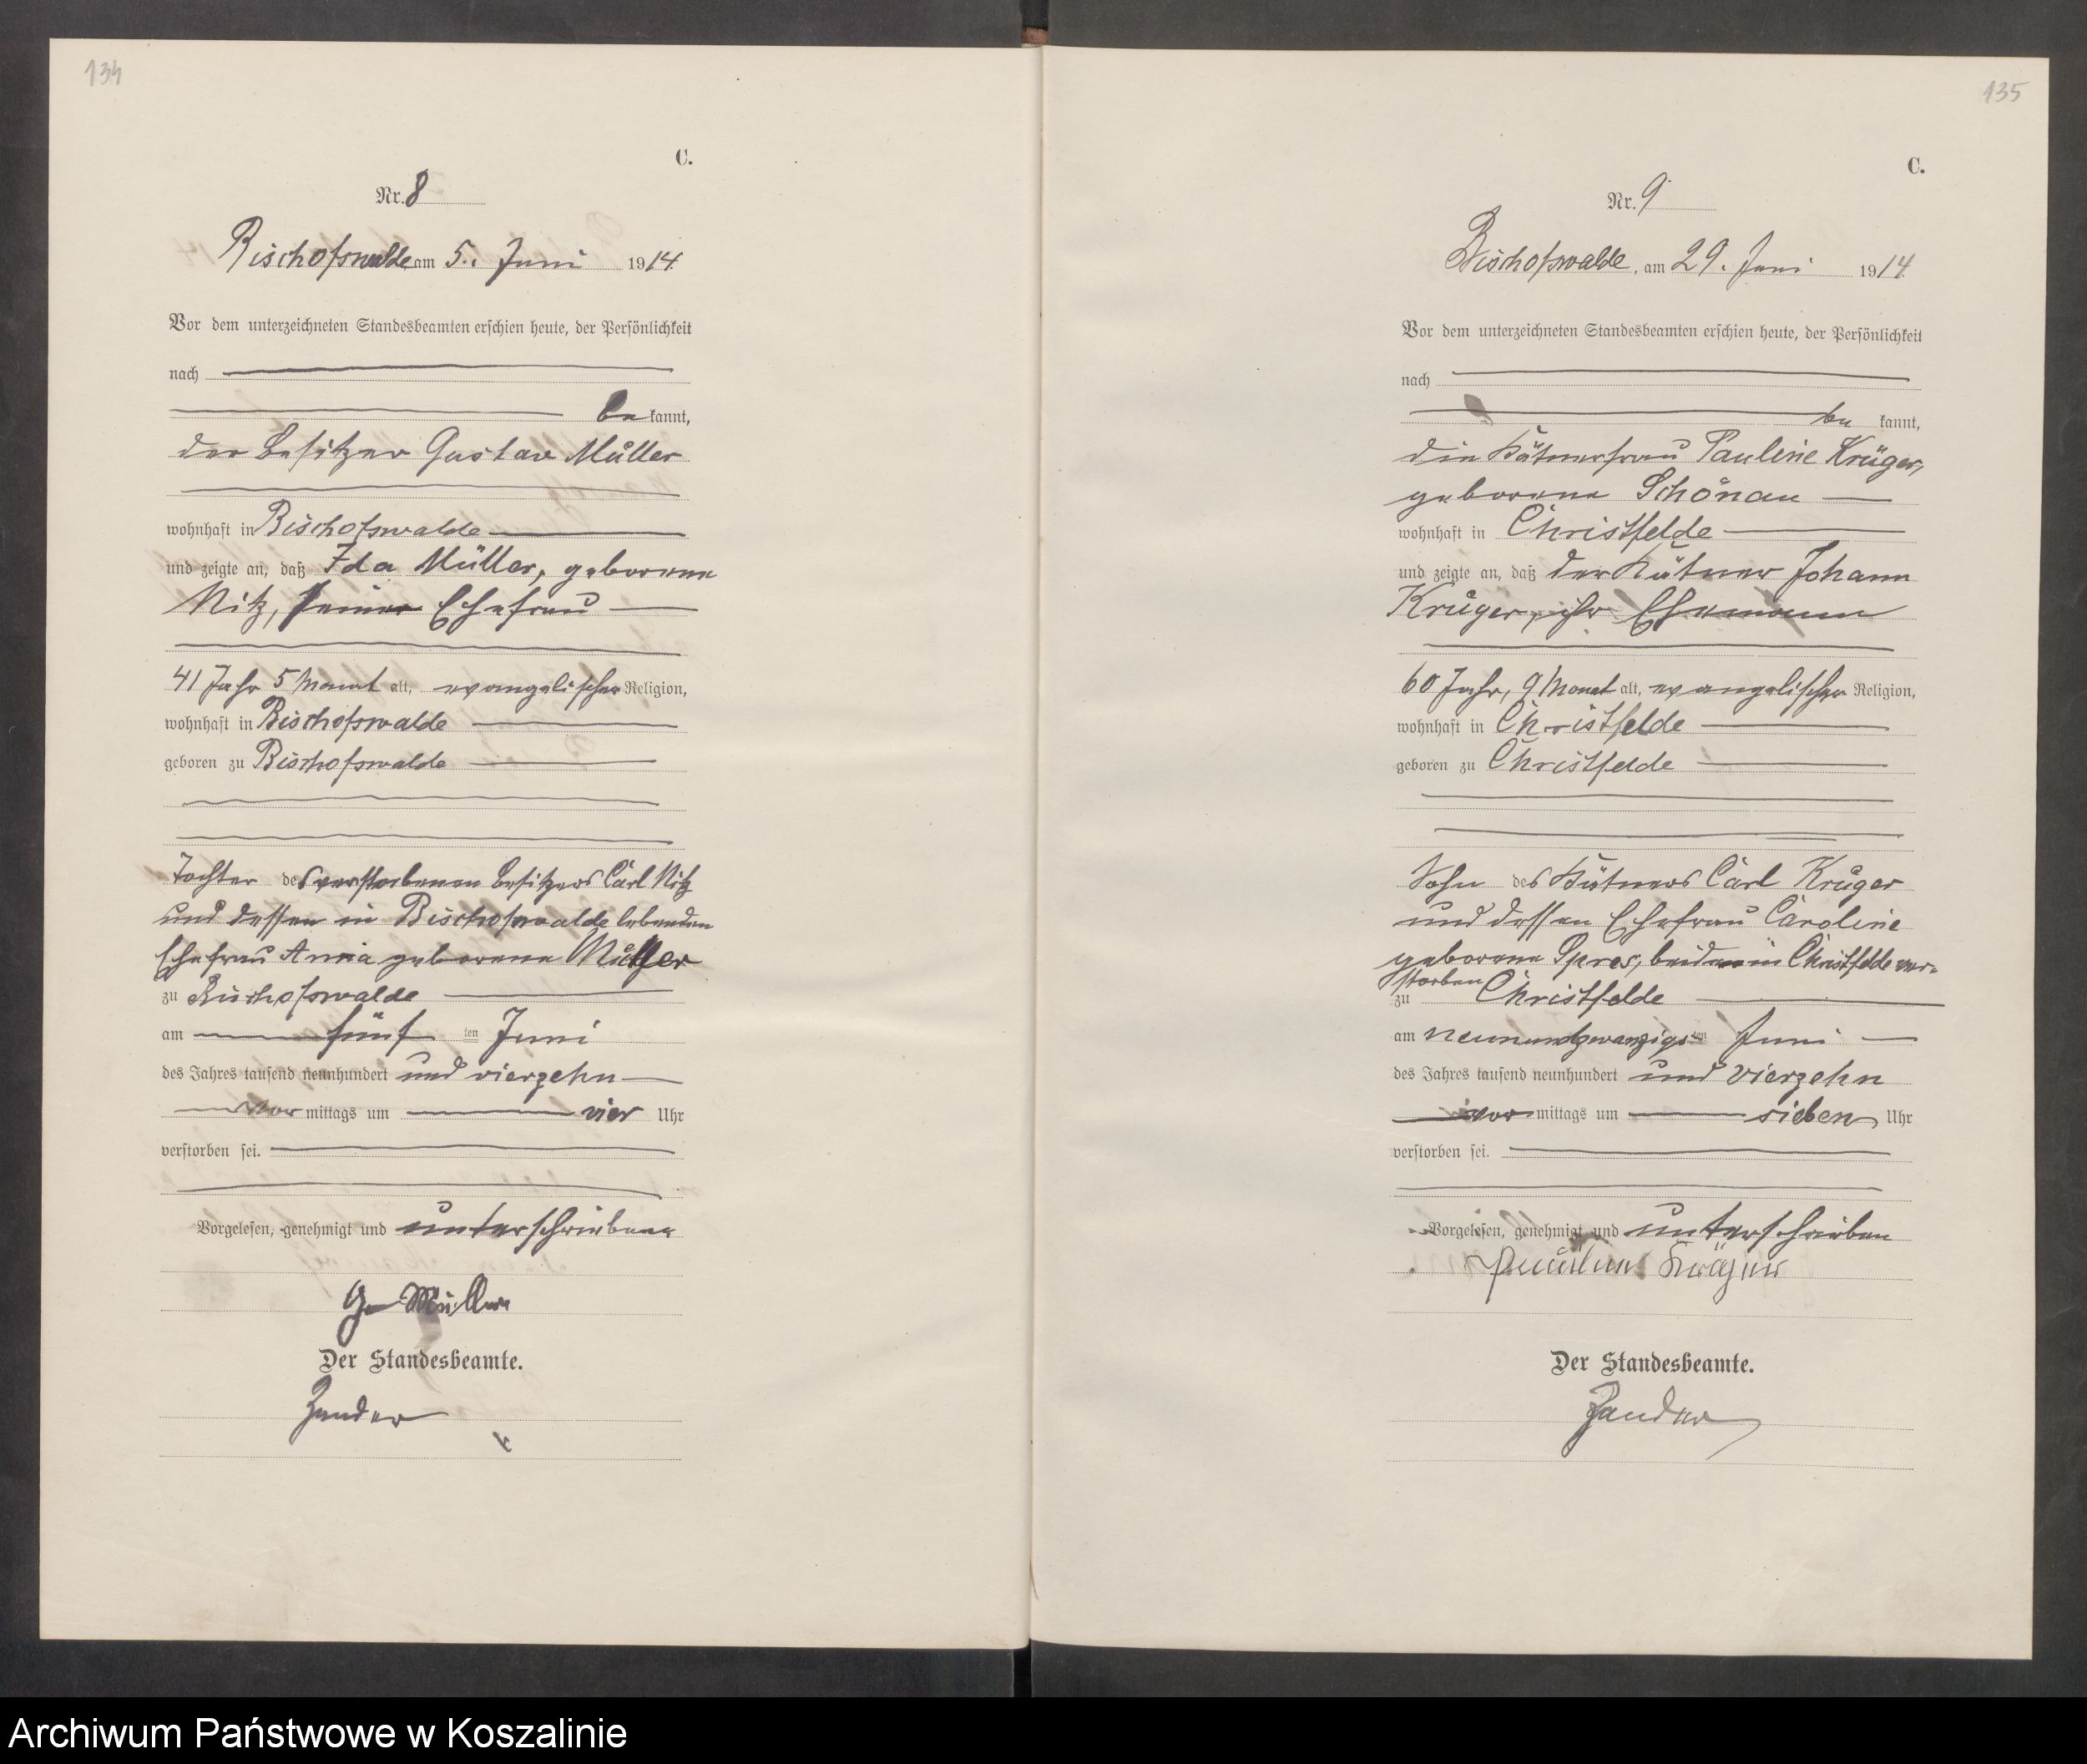 134
C.
Nr. 8
Bischofswalde am 5. Juni 1914.
Vor dem unterzeichneten Standesbeamten erschien heute, der Persönlichkeit
nach
be kannt,
der Besitzer Gustav Müller
wohnhaft in Bischofswalde
und zeigte an, daß Ida Müller, geborene
Nitz, seine Ehefrau
41 Jahr 5 Monat alt, evangelischer Religion,
wohnhaft in Bischofswalde
geboren zu Bischofswalde
Tochter des verstorbenen Besitzers Carl Nitz
und dessen in Bischofswalde lebenden
Ehefrau Anna geborene Müller
zu Bischofswalde
am fünf ten Juni
des Jahres tausend neunhundert und vierzehn
vor mittags um vier Uhr
verstorben sei.
Vorgelesen, genehmigt und unterschrieben
G. Müller
Der Standesbeamte.
Zander
135
C.
Nr. 9
Bischofswalde, am 29. Juni 1914
Vor dem unterzeichneten Standesbeamten erschien heute, der Persönlichkeit
nach
be kannt,
die Kätnerfrau Pauline Krüger,
geborene Schönau
wohnhaft in Christfelde
und zeigte an, daß der Kätner Johann
Krüger, ihr Ehemann
60 Jahr, 9 Monat alt, evangelischer Religion,
wohnhaft in Christfelde
geboren zu Christfelde
Sohn des Kätners Carl Krüger
und dessen Ehefrau Caroline
geborene beide in Christfelde ver-
storben
zu Christfelde
am neunundzwanzigs ten Juni
des Jahres tausend neunhundert und vierzehn
vor mittags um sieben Uhr
verstorben sei.
Vorgelesen, genehmigt und unterschrieben
Pauline Krüger
Der Standesbeamte.
Zander
Archiwum Państwowe w Koszalinie